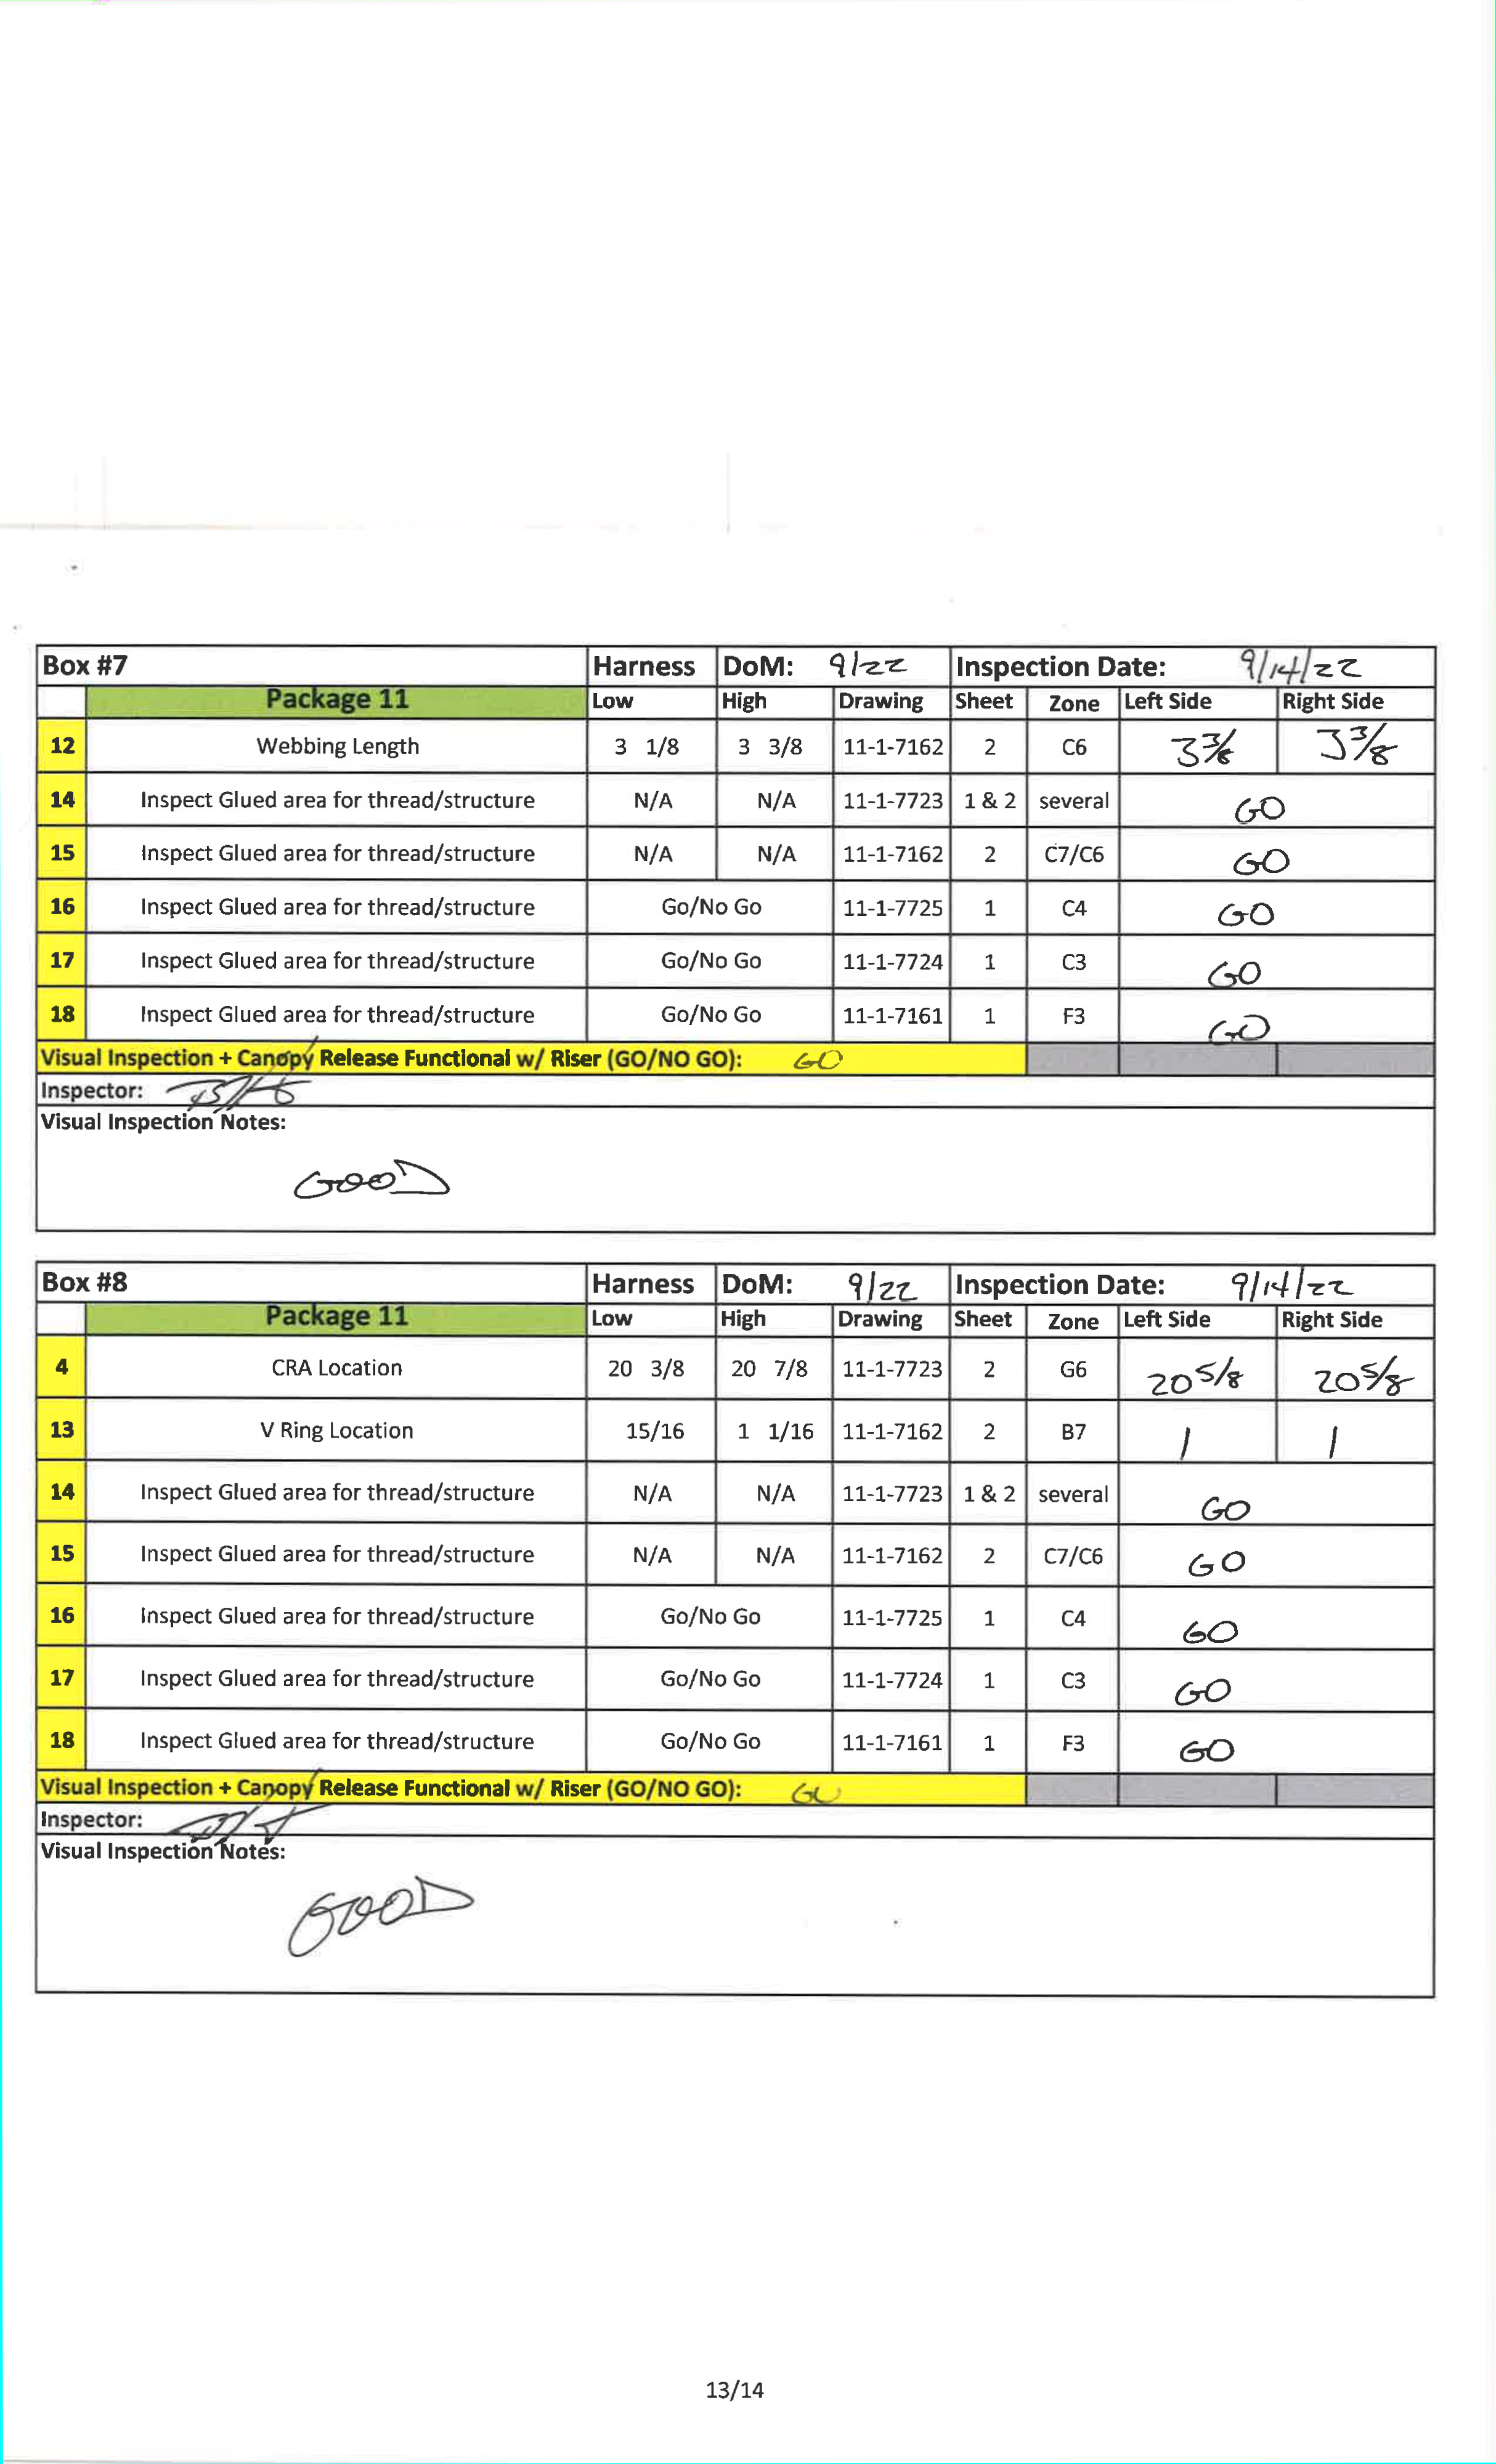 Box #7 Harness DoM: 9/22 Inspection Date: 9/14/22
Package 11 Low High Drawing Sheet Zone Left Side Right Side
12 Webbing Length 3 1/8 3 3/8 11-1-7162 2 C6 3 3/8 3 3/8
14 Inspect Glued area for thread/structure N/A N/A 11-1-7723 1 & 2 several GO
15 Inspect Glued area for thread/structure N/A N/A 11-1-7162 2 C7/C6 GO
16 Inspect Glued area for thread/structure Go/No Go 11-1-7725 1 C4 GO
17 Inspect Glued area for thread/structure Go/No Go 11-1-7724 1 C3 GO
18 Inspect Glued area for thread/structure Go/No Go 11-1-7161 1 F3 GO
Visual Inspection + Canopy Release Functional w/ Riser (GO/NO GO): GO
Inspector:
Visual Inspection Notes:
GOOD
Box #8 Harness DoM: 9/22 Inspection Date: 9/14/22
Package 11 Low High Drawing Sheet Zone Left Side Right Side
4 CRA Location 20 3/8 20 7/8 11-1-7723 2 G6 20 5/8 20 5/8
13 V Ring Location 15/16 1 1/16 11-1-7162 2 B7 1 1
14 Inspect Glued area for thread/structure N/A N/A 11-1-7723 1 & 2 several GO
15 Inspect Glued area for thread/structure N/A N/A 11-1-7162 2 C7/C6 GO
16 Inspect Glued area for thread/structure Go/No Go 11-1-7725 1 C4 GO
17 Inspect Glued area for thread/structure Go/No Go 11-1-7724 1 C3 GO
18 Inspect Glued area for thread/structure Go/No Go 11-1-7161 1 F3 GO
Visual Inspection + Canopy Release Functional w/ Riser (GO/NO GO): GO
Inspector:
Visual Inspection Notes:
GOOD
13/14